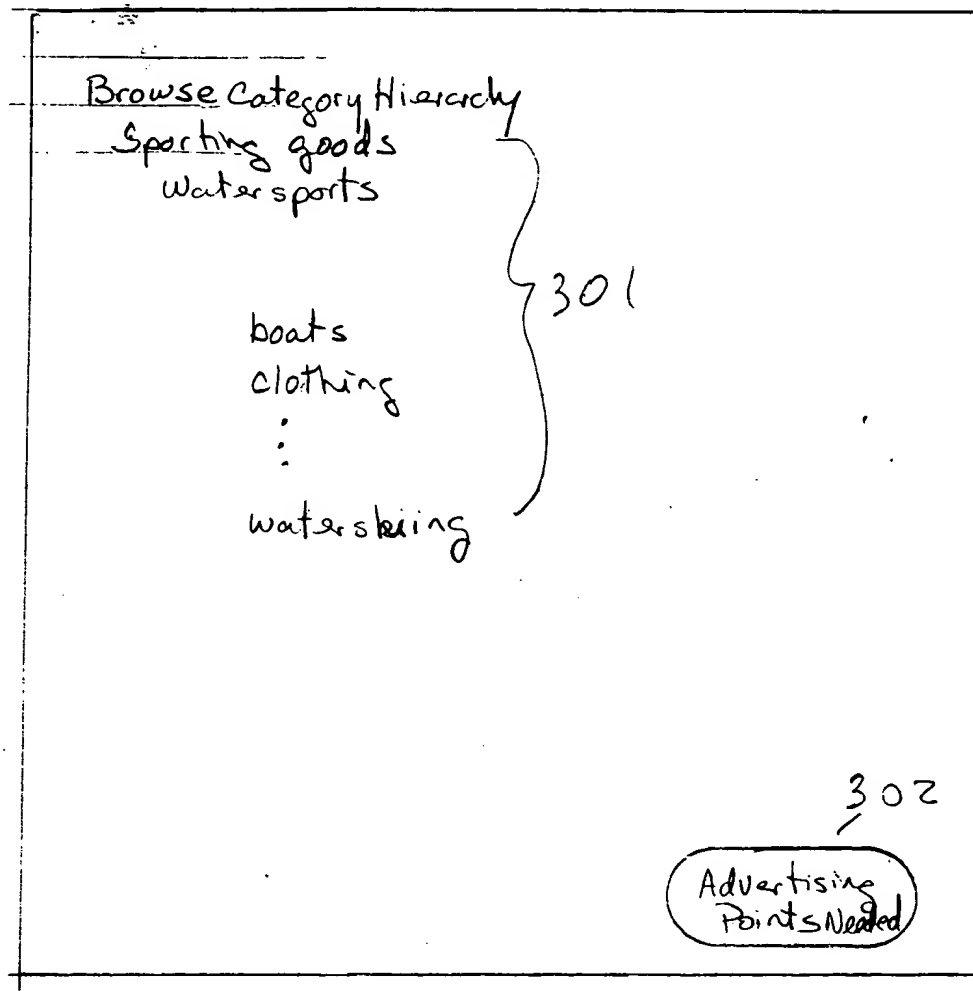 Browse Category Hierarchy
Sporting goods
Watersports
301
boats
clothing
⋮
waterskiing
302
Advertising
Points Needed